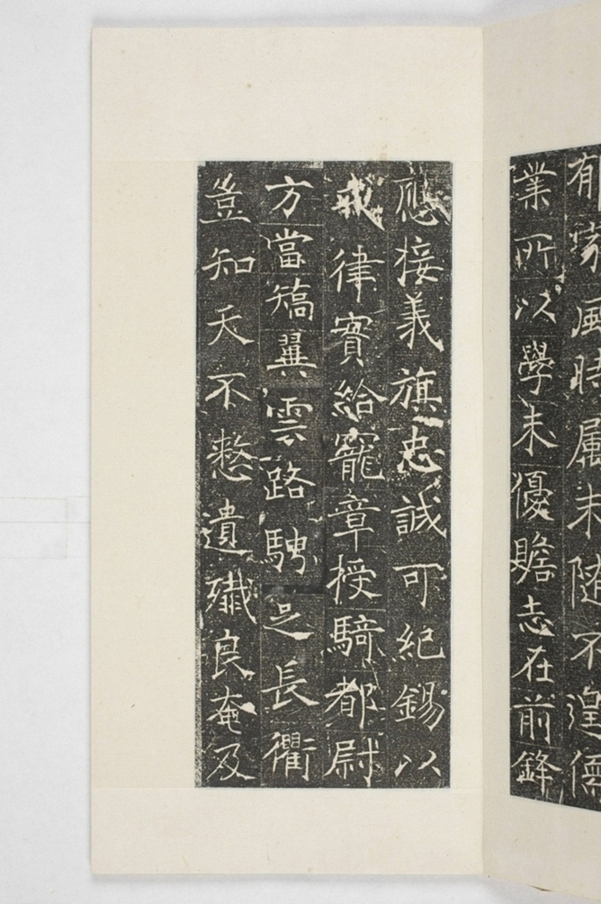 郁家風時属未随不遑儒
業所以學未優贍志在前鋒
應接義旗忠誠可紀錫以
戎律實給寵章授騎都尉
方當矯翼雲路騁足長衢
豈知天不憗遺殲良奄及